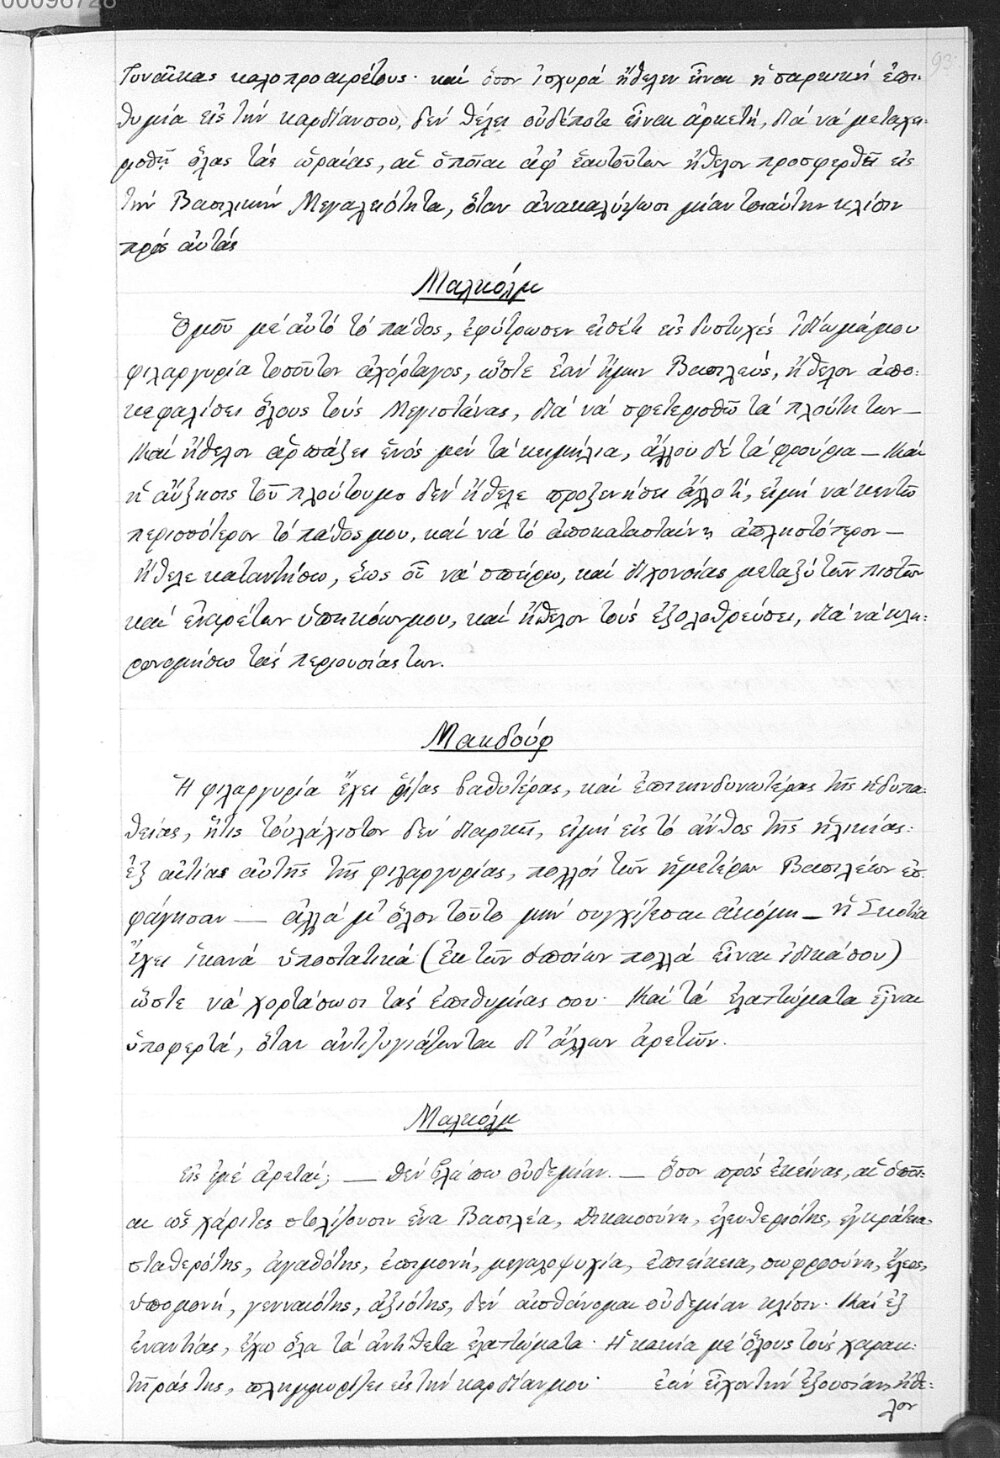 00096728
93
Γυναῖκας καλοπροαιρέτους· καί ὅσον ἰσχυρά ἤθελεν εἶναι ἡ σαρκική ἐπι-
θυμία εἰς τήν καρδίανσου, δέν θέλει οὐδέποτε εἶναι ἀρκετή, διά νά μεταχει-
ρισθῇ ὅλας τάς ὡραίας, αἱ ὁποῖαι ἀφ' ἑαυτοῦτων ἤθελον προσφερθεῖ εἰς
τήν Βασιλικήν Μεγαλειότητα, ὅταν ἀνακαλύψωσι μίαν τοιαύτην κλίσιν
πρός αὐτάς
Μαλκόλμ
Ὁμοῦ μέ αὐτό τό πάθος, ἐφύτρωσεν εἰσέτι εἰς δυστυχές ἰδίωμάμου
φιλαργυρία τοσοῦτον ἀχόρταγος, ὥστε ἐάν ἤμην Βασιλεύς, ἤθελον ἀπο-
κεφαλίσει ὅλους τούς Μεγιστάνας, διά νά σφετερισθῶ τά πλούτη των —
Καί ἤθελον ἁρπάξει ἑνός μέν τά κειμήλια, ἄλλου δέ τά φρούρια — Καί
ἡ αὔξησις τοῦ πλούτουμου δέν ἤθελε προξενήσει ἄλλο τί, εἰμή νά κεντῶ
περισσότερον τό πάθοςμου, καί νά τό ἀποκαταστaίνῃ ἀπληστότερον —
Ἤθελε καταντήσω, ἕως οὗ νά σπείρω, καί διχονοίας μεταξύ τῶν πιστῶν
καί ἐναρέτων ὑπηκόωνμου, καί ἤθελον τούς ἐξολοθρεύσει, διά νά κλη-
ρονομήσω τάς περιουσίας των.
Μακδούφ
Ἡ φιλαργυρία ἔχει ῥίζας βαθυτέρας, καί ἐπικινδυνωτέρας τῆς ἡδυπα-
θείας, ἥτις τοὐλάχιστον δέν διαρκεῖ, εἰμή εἰς τό ἄνθος τῆς ἡλικίας·
ἐξ αἰτίας αὐτῆς τῆς φιλαργυρίας, πολλοί τῶν ἡμετέρων Βασιλέων ἐσ-
φάγησαν — ἀλλά μ' ὅλον τοῦτο μήν συγχίζεσαι ἀκόμη — ἡ Σκοτία
ἔχει ἱκανά ὑποστατικά (ἐκ τῶν ὁποίων πολλά εἶναι ἰδικάσου)
ὥστε νά χορτάσωσι τάς ἐπιθυμίας σου· Καί τά ἐλαττώματα εἶναι
ὑποφερτά, ὅταν ἀντιζυγιάζωνται δι' ἄλλων ἀρετῶν.
Μαλκόλμ
Εἰς ἐμέ ἀρεταί; — Δέν βλέπω οὐδεμίαν. — Ὅσον πρός ἐκείνας, αἱ ὁποῖ-
αι ὡς χάριτες στολίζουσιν ἕνα Βασιλέα, Δικαιοσύνη, ἐλευθεριότης, ἐγκράτεια,
σταθερότης, ἀγαθότης, ἐπιμονή, μεγαλοψυχία, ἐπιείκεια, σωφροσύνη, ἔλεος,
ὑπομονή, γενναιότης, ἀξιότης, δέν αἰσθάνομαι οὐδεμίαν κλίσιν· Καί ἐξ
ἐναντίας, ἔχω ὅλα τά ἀντίθετα ἐλαττώματα· Ἡ κακία μέ ὅλους τούς χαρακ-
τῆράς της, πλημμυρίζει εἰς τήν καρδίανμου· ἐάν εἶχον τήν ἐξουσίαν, ἤθε-
λον